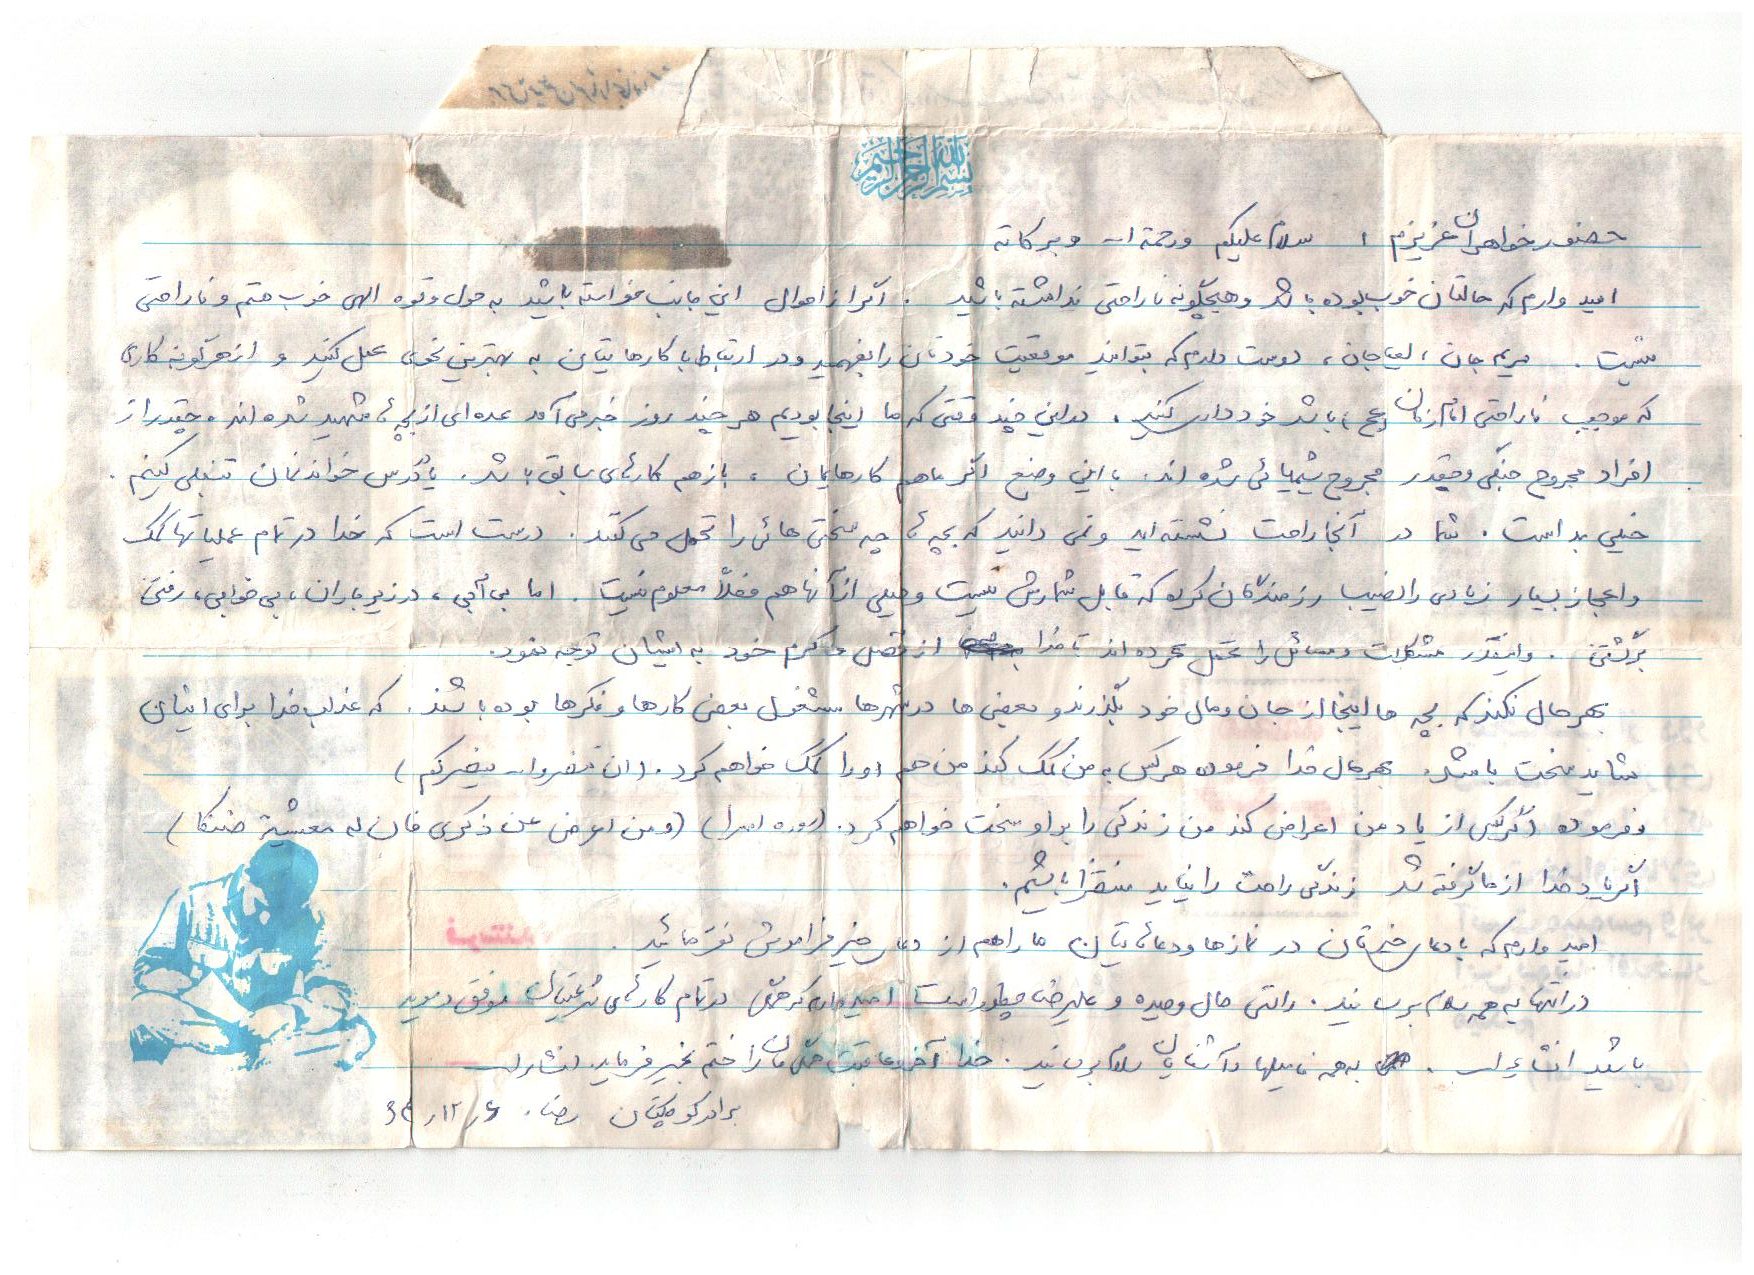 بسم الله الرحمن الرحیم
حضور خواهران عزیزم ، سلام علیکم ورحمة ا... وبرکاته
امید وارم که حالتان خوب بوده باشد و هیچگونه ناراحتی نداشته باشید . اگر از احوال این جانب خواسته باشید به حول وقوه الهی خوب هستم و ناراحتی
نیست . مریم جان ، لعیا جان ، دوست دارم که بتوانید موقعیت خودتان را بفهمید و در ارتباط با کارهایتان به بهترین نحوی عمل کنید و از هر گونه کاری
که موجب ناراحتی امام زمان (عج) باشد خود داری کنید . در این چند وقتی که ما اینجا بودیم هر چند روز خبر می آمد عده ای از بچه ها شهید شده اند ، چقدر از
افراد مجروح جنگی وچقدر مجروح شیمیائی شده اند . با این وضع اگر ما هم کارهایمان ، باز هم کارهای سابق باشد . یا درس خواندنمان تنبلی کنیم .
خیلی بد است . شما در آنجا راحت نشسته اید و نمی دانید که بچه ها چه سختی هائی را تحمل می کنند . درست است که خدا در تمام عملیاتها کمک
و اعجاز بسیار زیادی را نصیب رزمندگان کرده که قابل شمارش نیست و خیلی از آنها هم فعلاً معلوم نیست . اما بی آبی ، در زیر باران ، بی خوابی ، رفتن
برگشتن . و اینقدر مشکلات و مسائل را تحمل کرده اند تا خدا از فضل و کرم خود به ایشان توجه نمود .
بهر حال نکند که بچه ها اینجا از جان ومال خود بگذرند و بعضی ها در شهرها مشغول بعضی کارها و فکرها بوده باشند . که عذاب خدا برای اینان
شاید سخت باشد . بهر حال خدا فرموده هر کس به من کمک کند من هم او را کمک خواهم کرد . (ان تنصروا ... ینصرکم)
و فرموده اگر کس از یاد من اعراض کند من زندگی را بر او سخت خواهم کرد . (سوره اسرا) (ومن اعرض عن ذکری فان له معیشة ضنکا)
اگر یاد خدا از ما گرفته شد زندگی راحت را نباید منتظر باشیم .
امید وارم که با دعای خیرتان در نمازها و دعاهایتان ما را هم از دعای خیر فراموش نفرمائید .
در انتها به همه سلام برسانید . راستی حال وحیده و علیرضا چطور است امیدوارم که همگی در تمام کارهای شرعیتان موفق و موید
باشید انشاء ا... . به همه فامیلها و آشنایان سلام برسانید . خدا آخر و عاقبت همگی مان را ختم بخیر فرماید . انشاء ا...
برادر کوچکتان رضا . ۶ر۱۲ر۶۴